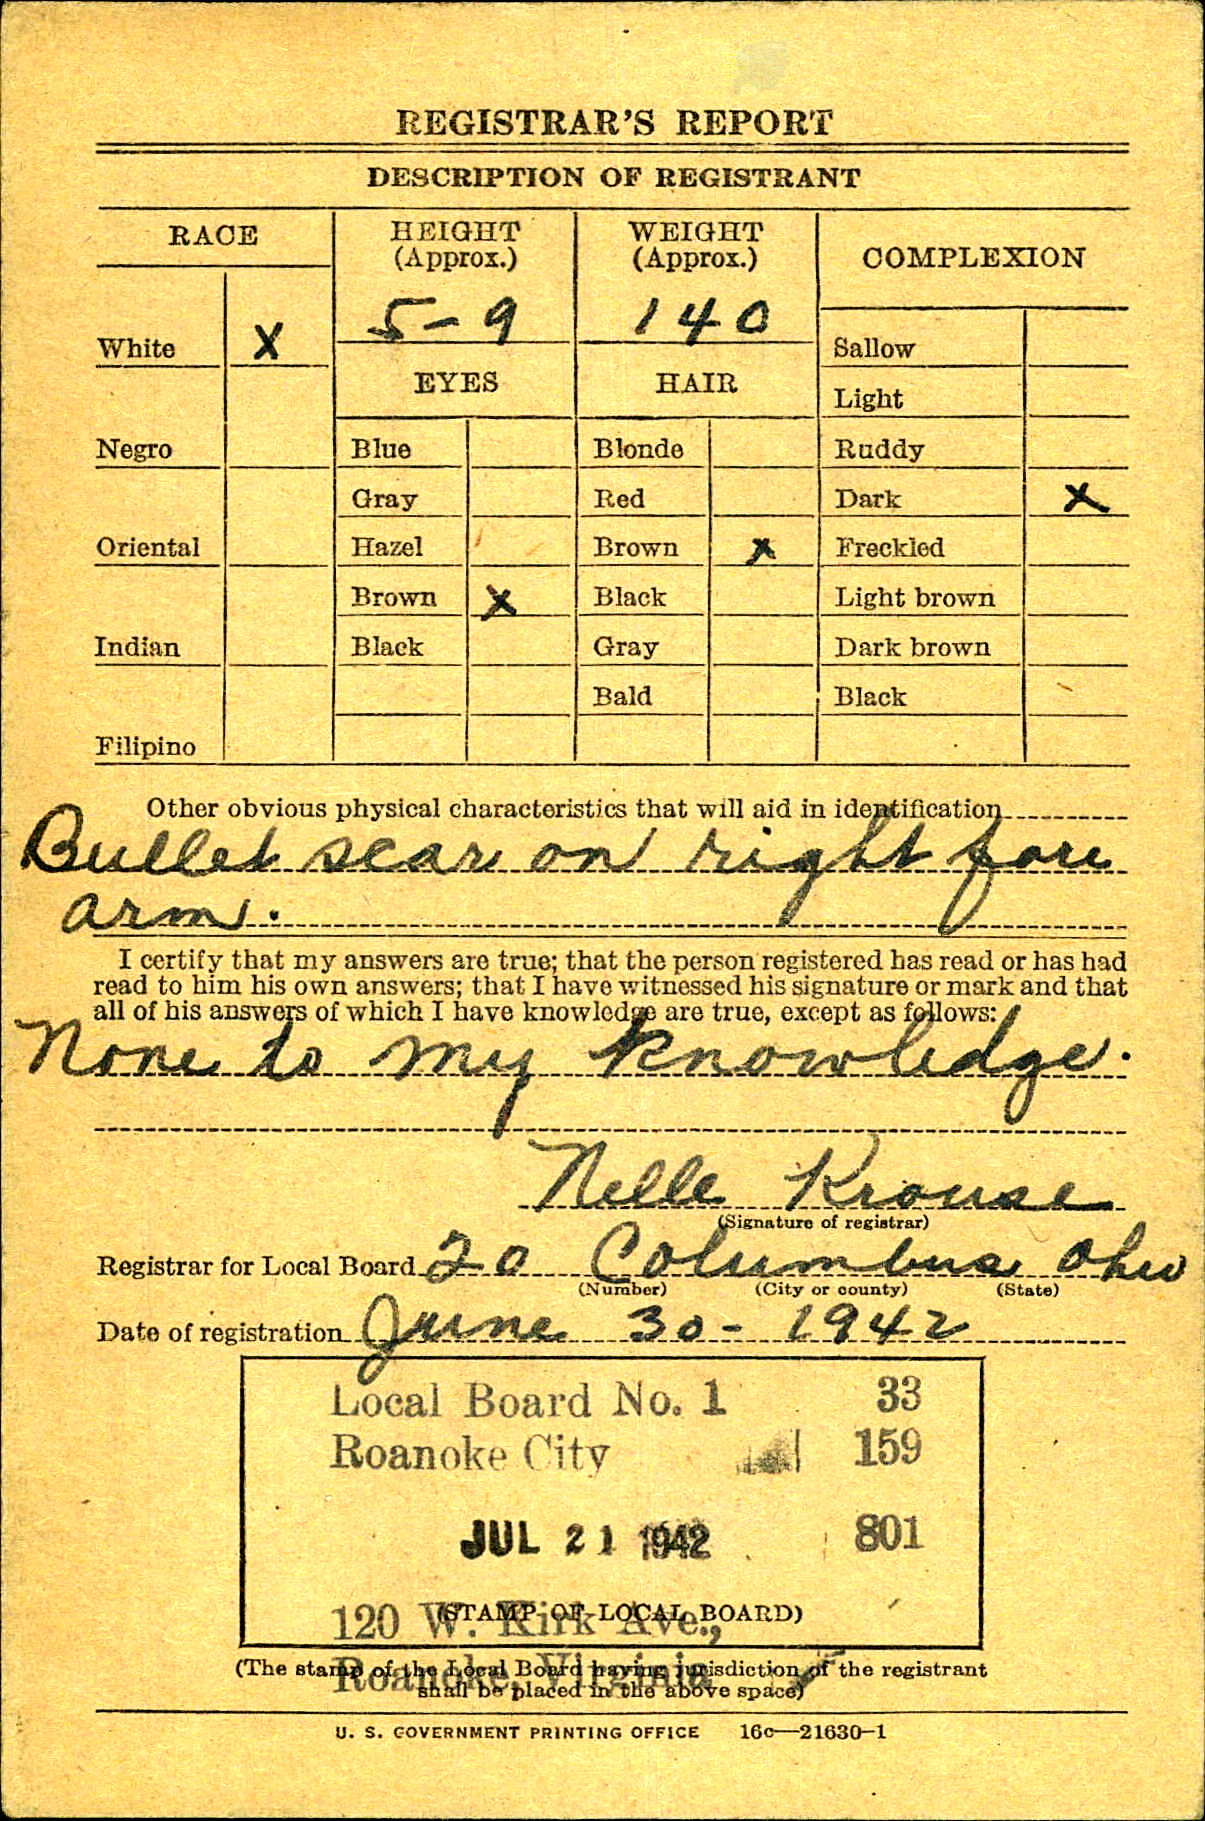 REGISTRAR'S REPORT
DESCRIPTION OF REGISTRANT
RACE
HEIGHT
(Approx.)
WEIGHT
(Approx.)
COMPLEXION
5-9
140
White X
Sallow
EYES
HAIR
Light
Negro
Blue
Blonde
Ruddy
Gray
Red
Dark X
Oriental
Hazel
Brown X
Freckled
Brown X
Black
Light brown
Indian
Black
Gray
Dark brown
Bald
Black
Filipino
Other obvious physical characteristics that will aid in identification
Bullet scar on right fore
arm.
I certify that my answers are true; that the person registered has read or has had
read to him his own answers; that I have witnessed his signature or mark and that
all of his answers of which I have knowledge are true, except as follows:
None to my knowledge.
Nelle Krouse
(Signature of registrar)
Registrar for Local Board 20 Columbus Ohio
(Number) (City or county) (State)
Date of registration June 30 - 1942
Local Board No. 1 33
Roanoke City 159
JUL 21 1942 801
(STAMP OF LOCAL BOARD)
120 W. Kirk Ave.,
(The stamp of the Local Board having jurisdiction of the registrant
Roanoke, Virginia
shall be placed in the above space)
U. S. GOVERNMENT PRINTING OFFICE 16c—21630-1